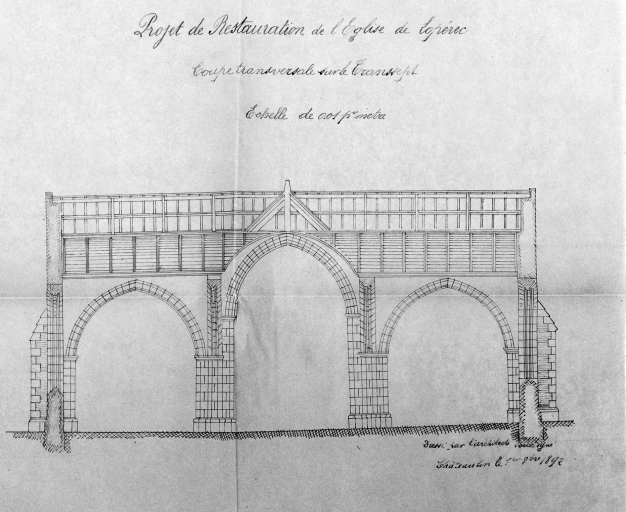 Projet de Restauration de l'Eglise de Lopérec
Coupe transversale sur le Transsept
Echelle de 0.01 pr mètre
Dressé par l'architecte soussigné
Châteaulin le 1er 1892